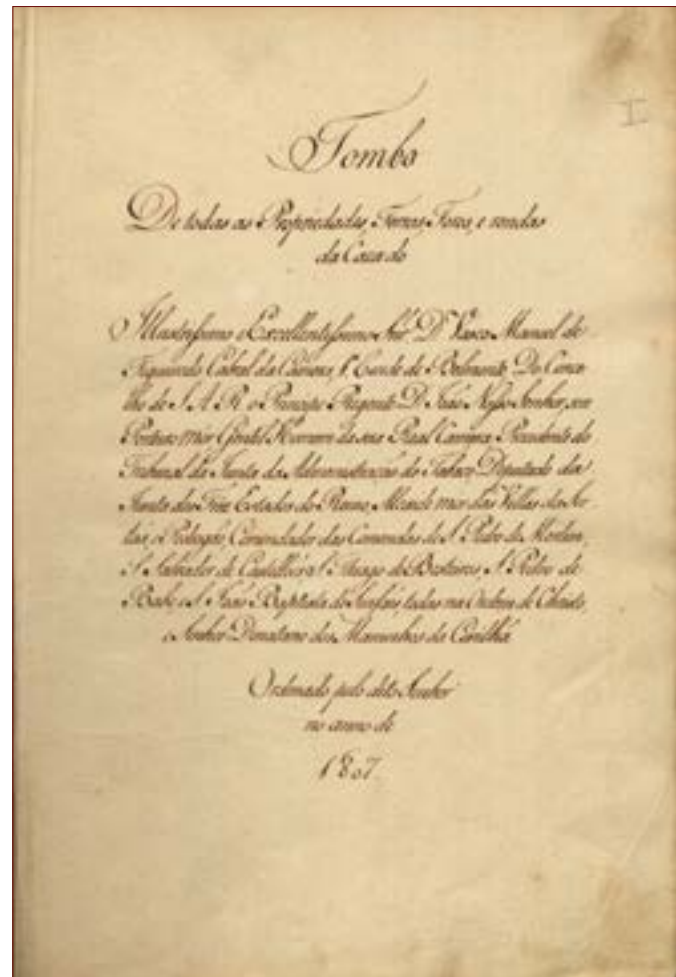 I
Tombo
De todas as Propriedades, Terras, Foros, e rendas
da Caza do
Illustrissimo e Excellentissimo Snr. D. Vasco Manoel de
Figueiredo Cabral da Camara, 1º Conde de Belmonte Do Conce-
lho de S. A. R. o Principe Regente D. João Nosso Senhor, seu
Porteiro mór Gentil Homem da sua Real Camera Presidente do
Tribunal da Junta da Administração do Tabaco Deputado da
Junta dos Tres Estados do Reino, Alcaide mór das Villas da Ser-
tãa, e Pedrogão, Comendador das Comendas de S. Pedro de
S. Salvador de S. Thiago de Besteiros, S. Pedro de
e S. João Baptista de Sinfães todas na Ordem de Christo
e Senhor Donatario dos Maninhos da Covilhã
Ordenado pelo dito Senhor
no anno de
1807.